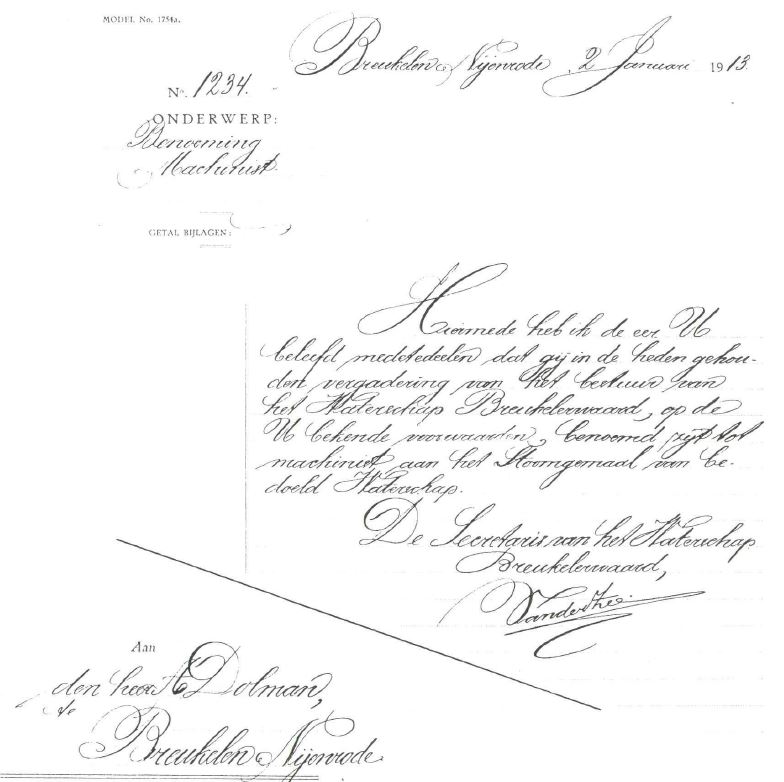 MODEL No. 1754a.
Breukelen Nijenrode 2 Januari 1913
No. 1234.
ONDERWERP:
Benoeming
Machinist.
GETAL BIJLAGEN:
Hiermede heb ik de eer U
beleefd medetedeelen dat gij in de heden gehou-
den vergadering van het bestuur van
het Waterschap Breukelerwaard, op de
U bekende voorwaarden, benoemd zijt tot
machinist aan het Stoomgemaal van be-
doeld Waterschap.
De Secretaris van het Waterschap
Breukelerwaard,
Aan
den heer Dolman,
te
Breukelen Nijenrode